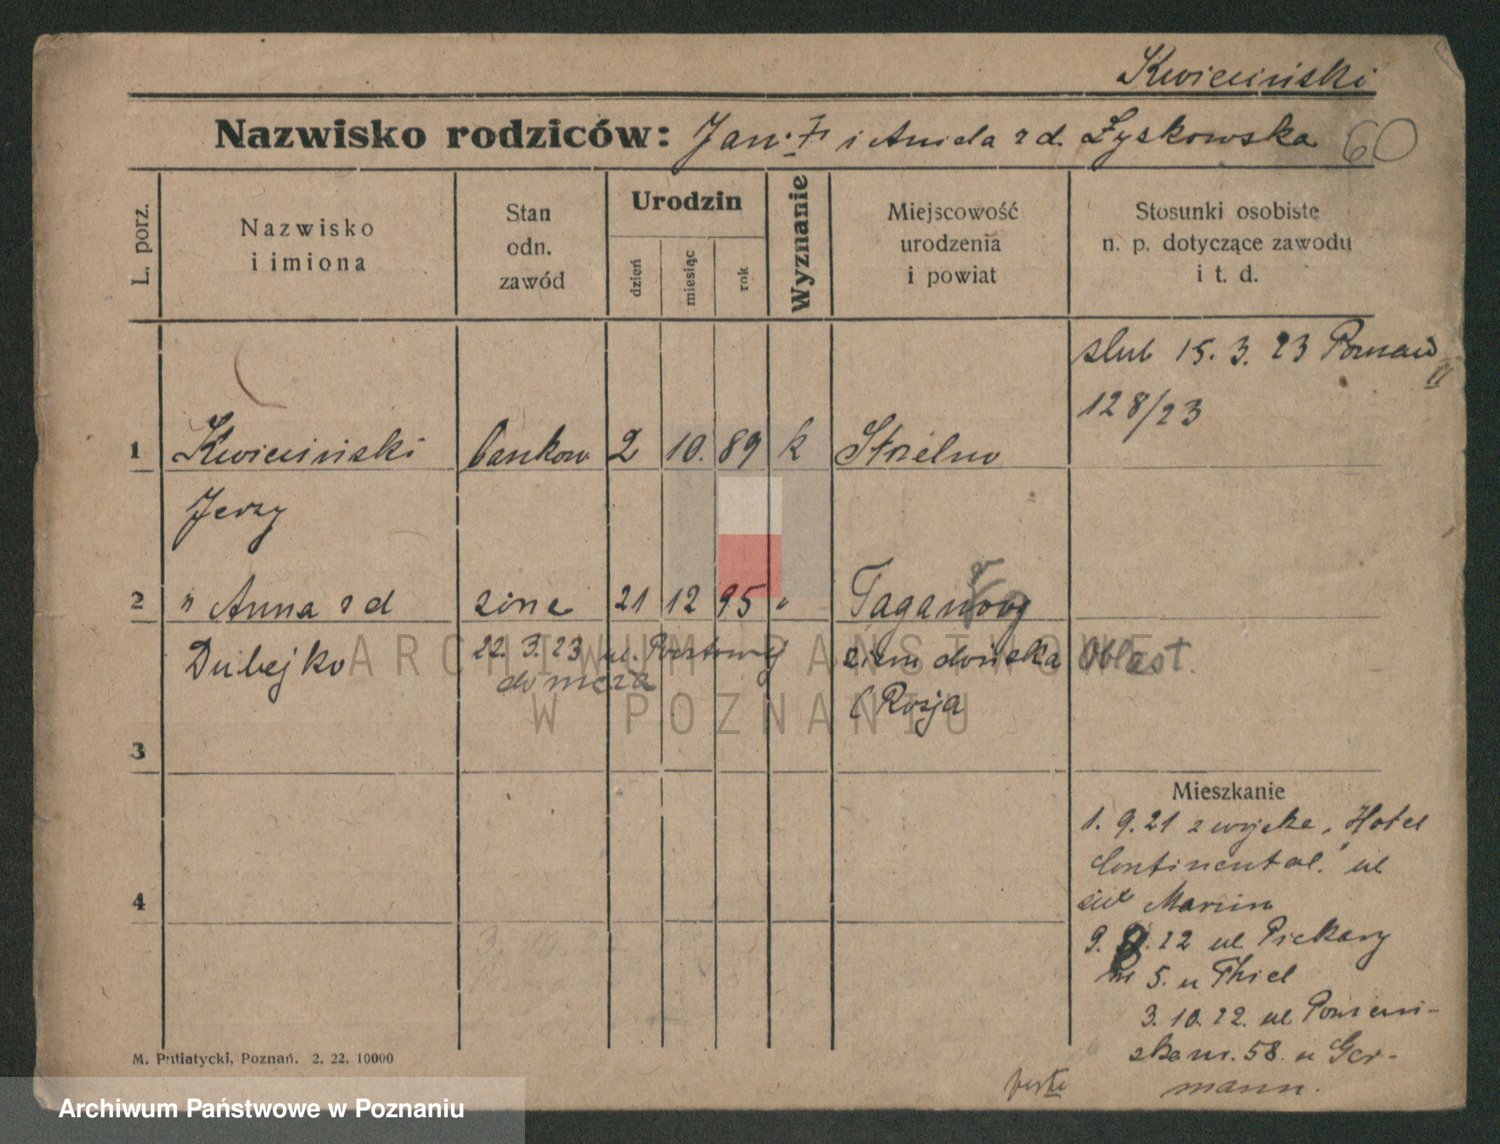 Kwieciński
Nazwisko rodziców: Jan i Aniela z d. Łyskowska 60
L. porz.
Nazwisko
i imiona
Stan
odn.
zawód
Urodzin
dzień
miesiąc
rok
Wyznanie
Miejscowość
urodzenia
i powiat
Stosunki osobiste
n. p. dotyczące zawodu
i t. d.
slub 15. 3. 23 Poznań
128/23
1 Kwieciński bankow 2 10. 89 k Strzelno
Jerzy
2 " Anna z d żone 21 12 95 " Taganrog
Dubejko 22. 3. 23 ul. Pocztowej ziem dońska Oblast.
do męża
(Rosja
3
Mieszkanie
1. 9. 21 z wojska, Hotel
Continental. ul
4 św Marcin
9. 8. 22 ul Piekary
nr 5. u Thiel
3. 10. 22. ul Pomeń-
ska nr. 58. u Ger-
mann.
M. Putiatycki, Poznań. 2. 22. 10000
ARCHIWUM PAŃSTWOWE
W POZNANIU
Archiwum Państwowe w Poznaniu